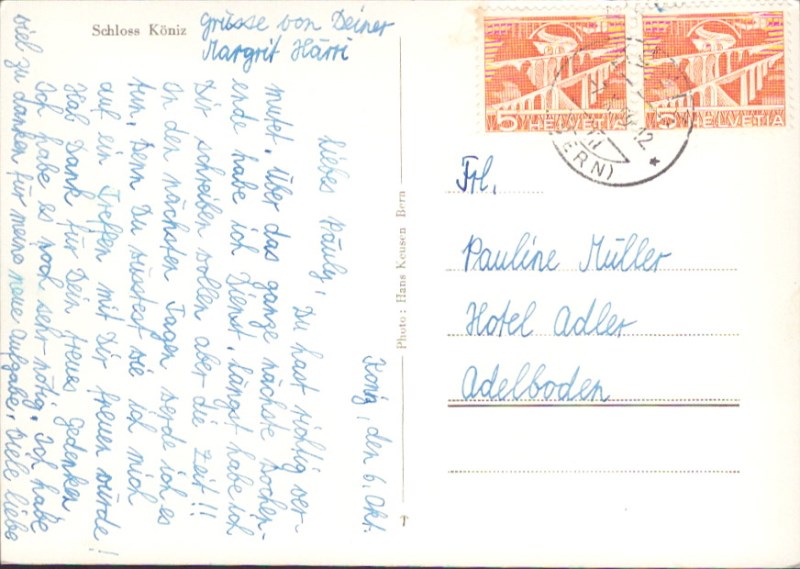 Schloss Köniz
Köniz, den 6. Okt.
Liebes Pauly,
Du hast richtig ver-
mutet. Über das ganze nächste Wochen-
ende habe ich Dienst. Längst habe ich
Dir schreiben wollen aber die Zeit!!
In den nächsten Tagen werde ich es
tun. Wenn Du wüstest wie ich mich
auf ein Treffen mit Dir freuen würde!
Hab Dank für Dein treues Gedenken
Ich habe es noch sehr nötig. Ich habe
viel zu danken für meine neue Aufgabe. Viele liebe
Grüsse von Deiner
Margrit Härri
Photo: Hans Keusen Bern
5 HELVETIA
5 HELVETIA
(BERN)
Frl.
Pauline Müller
Hotel Adler
Adelboden